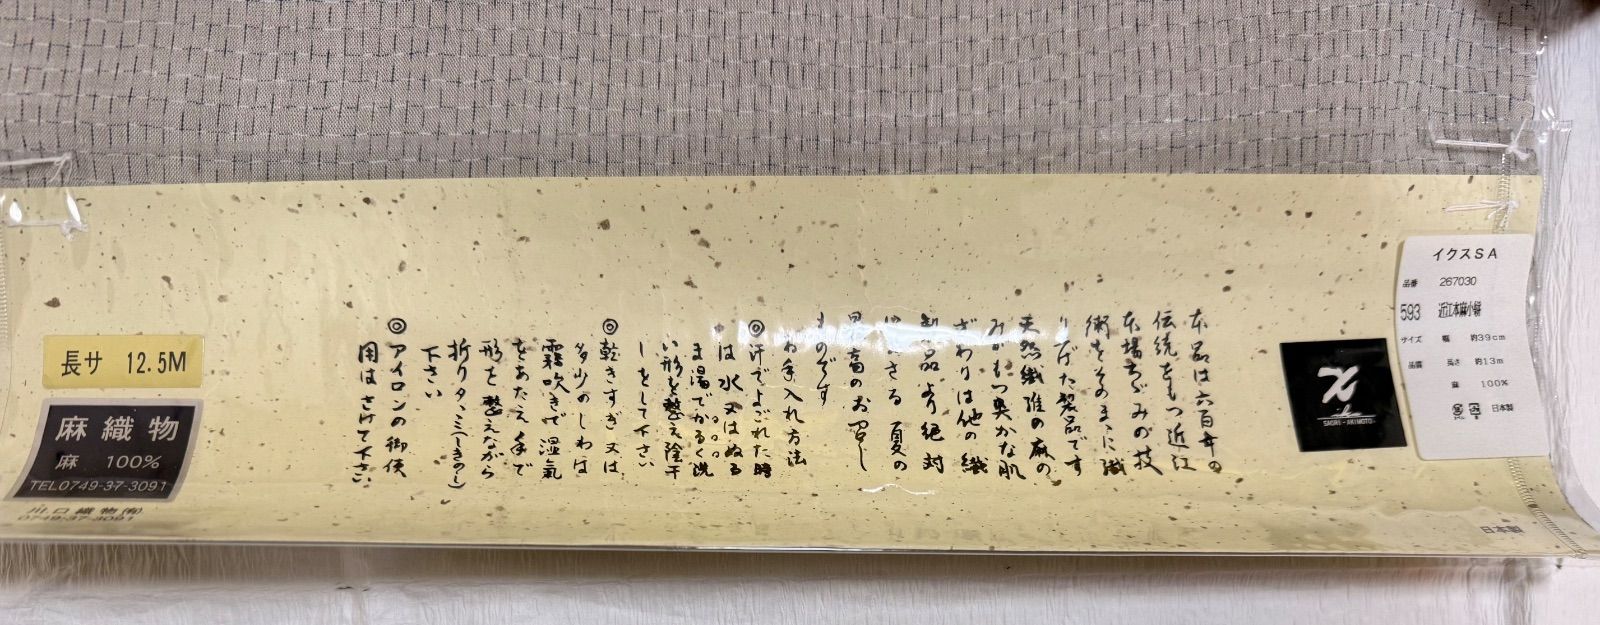 本品は六百年の
伝統をもつ近江
本場ちゞみの技
術をそのまゝに織
り上げた製品です
天然繊維の麻の
みがもつ奥かな肌
ざわりは他の繊
製品より絶対
夏の
最高のお召し
ものです
お手入れ方法
◎汗でよごれた時
は水又はぬる
ま湯でかるく洗
い形を整え陰干
しをして下さい
◎乾きすぎ又は
多少のしわは
霧吹きで湿氣
をあたえ手で
形を整えながら
折りタゝミ(しきのし)
下さい
◎アイロンの御使
用はさけて下さい
イクスSA
品番 267030
593 近江本麻小絣
サイズ 幅 約39cm
長さ 約13m
品質 麻 100%
日本製
SAGRI-AKIMOTO
日本製
長サ 12.5M
麻織物
麻 100%
TEL0749-37-3091
川口織物(有)
0749-37-3091